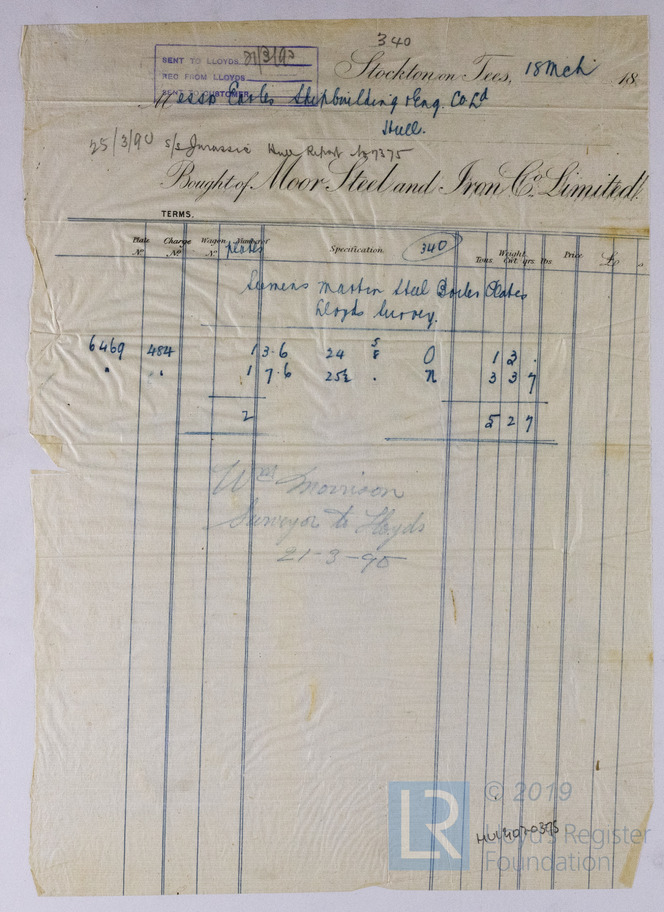 340
SENT TO LLOYDS 21/3/90
REC FROM LLOYDS
SENT TO CUSTOMER
Stockton on Tees, 18 Mch 18
Messrs Earles Shipbuilding & Eng. Co. Ld
Hull.
25/3/90 s/s Jurassic Hull Report No 7375
Bought of Moor Steel and Iron Co. Limited.
TERMS.
Plate No. Charge No. Wagon No. Number of plates Specification 340 Tons Weight Cwt qrs lbs Price £ s
Siemens Martin Steel Boiler Plates
Lloyds Survey.
6469 484 1 3·6 24 5/8 O 1 2 .
" " 1 7·6 25½ . n 3 3 7
2 5 2 7
Wm Morrison
Surveyor to Lloyds
21-3-90
LR © 2019
Lloyd's Register
Foundation